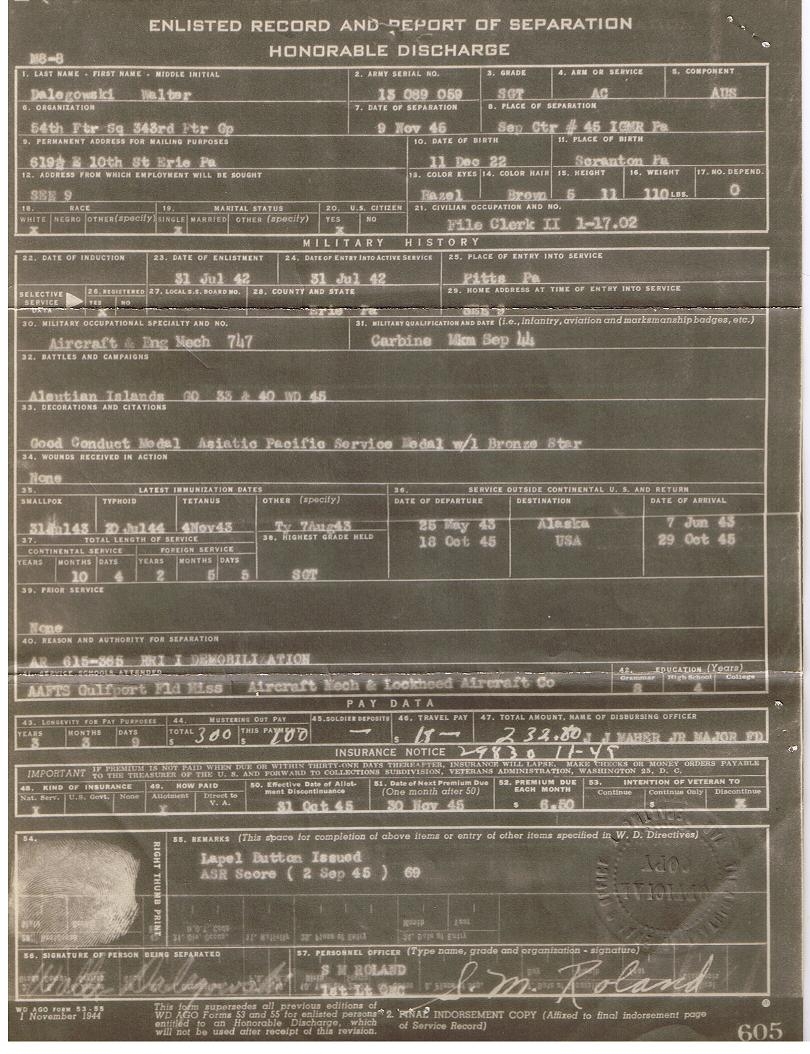 ENLISTED RECORD AND REPORT OF SEPARATION
HONORABLE DISCHARGE
M8-8
1. LAST NAME - FIRST NAME - MIDDLE INITIAL 2. ARMY SERIAL NO. 3. GRADE 4. ARM OR SERVICE 5. COMPONENT
Dalegowski Walter 13 089 059 SGT AC AUS
6. ORGANIZATION 7. DATE OF SEPARATION 8. PLACE OF SEPARATION
54th Ftr Sq 343rd Ftr Gp 9 Nov 45 Sep Ctr # 45 IGMR Pa
9. PERMANENT ADDRESS FOR MAILING PURPOSES 10. DATE OF BIRTH 11. PLACE OF BIRTH
619½ E 10th St Erie Pa 11 Dec 22 Scranton Pa
12. ADDRESS FROM WHICH EMPLOYMENT WILL BE SOUGHT 13. COLOR EYES 14. COLOR HAIR 15. HEIGHT 16. WEIGHT 17. NO. DEPEND.
SEE 9 Hazel Brown 5 11 110 LBS. 0
18. RACE 19. MARITAL STATUS 20. U.S. CITIZEN 21. CIVILIAN OCCUPATION AND NO.
WHITE NEGRO OTHER (specify) SINGLE MARRIED OTHER (specify) YES NO
X X X File Clerk II 1-17.02
MILITARY HISTORY
22. DATE OF INDUCTION 23. DATE OF ENLISTMENT 24. DATE OF ENTRY INTO ACTIVE SERVICE 25. PLACE OF ENTRY INTO SERVICE
31 Jul 42 31 Jul 42 Pitts Pa
SELECTIVE SERVICE DATA 26. REGISTERED YES NO 27. LOCAL S.S. BOARD NO. 28. COUNTY AND STATE 29. HOME ADDRESS AT TIME OF ENTRY INTO SERVICE
X Erie Pa SEE 9
30. MILITARY OCCUPATIONAL SPECIALTY AND NO. 31. MILITARY QUALIFICATION AND DATE (i.e., infantry, aviation and marksmanship badges, etc.)
Aircraft & Eng Mech 747 Carbine Mkm Sep 44
32. BATTLES AND CAMPAIGNS
Aleutian Islands GO 33 & 40 WD 45
33. DECORATIONS AND CITATIONS
Good Conduct Medal Asiatic Pacific Service Medal w/1 Bronze Star
34. WOUNDS RECEIVED IN ACTION
None
35. LATEST IMMUNIZATION DATES 36. SERVICE OUTSIDE CONTINENTAL U. S. AND RETURN
SMALLPOX TYPHOID TETANUS OTHER (specify) DATE OF DEPARTURE DESTINATION DATE OF ARRIVAL
31Jul43 20 Jul44 4Nov43 Ty 7Aug43 25 May 43 Alaska 7 Jun 43
37. TOTAL LENGTH OF SERVICE 38. HIGHEST GRADE HELD 18 Oct 45 USA 29 Oct 45
CONTINENTAL SERVICE FOREIGN SERVICE
YEARS MONTHS DAYS YEARS MONTHS DAYS
10 4 2 5 5 SGT
39. PRIOR SERVICE
None
40. REASON AND AUTHORITY FOR SEPARATION
AR 615-365 RRI I DEMOBILIZATION
41. SERVICE SCHOOLS ATTENDED 42. EDUCATION (Years)
Grammar High School College
AAFTS Gulfport Fld Miss Aircraft Mech & Lockheed Aircraft Co 8 4
PAY DATA
43. LONGEVITY FOR PAY PURPOSES 44. MUSTERING OUT PAY 45. SOLDIER DEPOSITS 46. TRAVEL PAY 47. TOTAL AMOUNT, NAME OF DISBURSING OFFICER
YEARS MONTHS DAYS TOTAL THIS PAYMENT
3 3 9 $ 300 $ 100 — $ 232.80 J J MAHER JR MAJOR FD
INSURANCE NOTICE 29830 11-45
IMPORTANT IF PREMIUM IS NOT PAID WHEN DUE OR WITHIN THIRTY-ONE DAYS THEREAFTER, INSURANCE WILL LAPSE. MAKE CHECKS OR MONEY ORDERS PAYABLE
TO THE TREASURER OF THE U. S. AND FORWARD TO COLLECTIONS SUBDIVISION, VETERANS ADMINISTRATION, WASHINGTON 25, D. C.
48. KIND OF INSURANCE 49. HOW PAID 50. Effective Date of Allotment Discontinuance 51. Date of Next Premium Due (One month after 50) 52. PREMIUM DUE EACH MONTH 53. INTENTION OF VETERAN TO
Nat. Serv. U.S. Govt. None Allotment Direct to V. A. Continue Continue Only Discontinue
X X 31 Oct 45 30 Nov 45 $ 6.50 $ X
54. RIGHT THUMB PRINT
55. REMARKS (This space for completion of above items or entry of other items specified in W. D. Directives)
Lapel Button Issued
ASR Score ( 2 Sep 45 ) 69
OFFICIAL COPY
56. SIGNATURE OF PERSON BEING SEPARATED 57. PERSONNEL OFFICER (Type name, grade and organization - signature)
Walter Dalegowski
S M ROLAND
1st Lt QMC S. M. Roland
WD AGO FORM 53-55
1 November 1944
This form supersedes all previous editions of
WD AGO Forms 53 and 55 for enlisted persons
entitled to an Honorable Discharge, which
will not be used after receipt of this revision.
2. FINAL INDORSEMENT COPY (Affixed to final indorsement page
of Service Record)
605